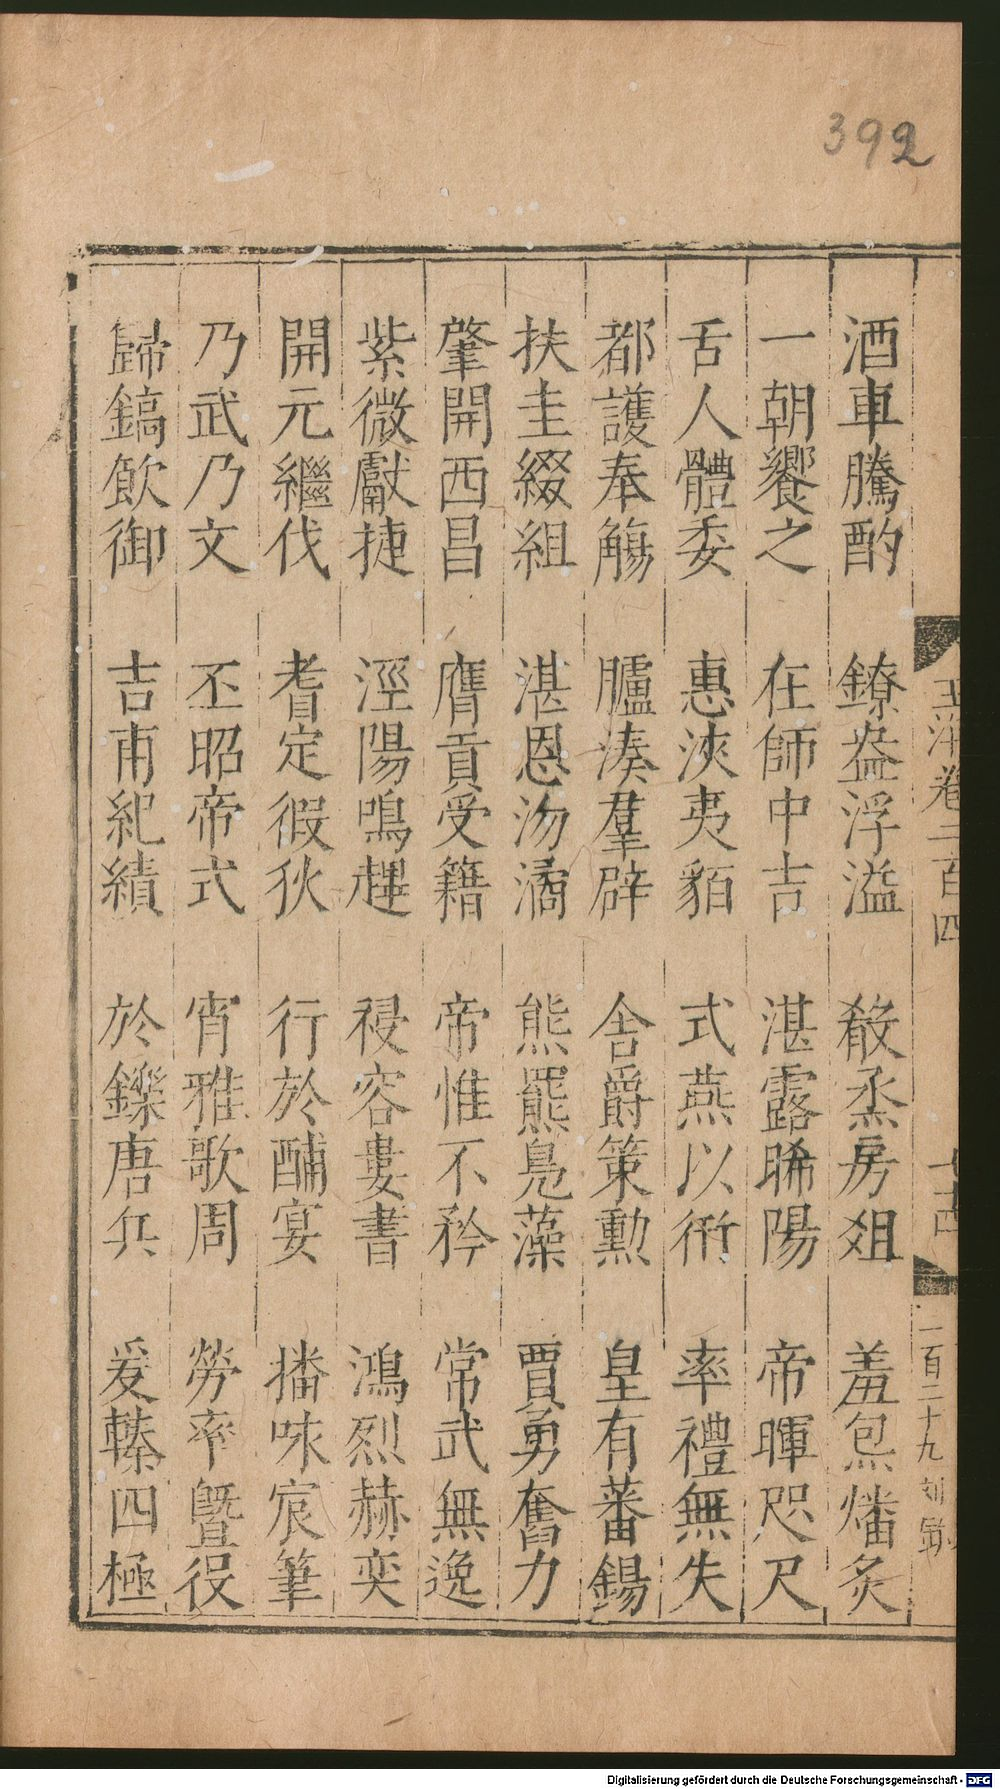 392
酒車騰酌 鐐盎浮溢 殽烝房俎 羞炰燔炙
一朝饗之 在師中吉 湛露晞陽 帝暉咫尺
舌人體委 惠浹夷貊 式燕以衎 率禮無失
都護奉觴 臚湊羣辟 舍爵策勳 皇有蕃錫
扶圭綴組 湛恩汤潏 熊羆鳧藻 賈勇奮力
肇開西昌 膺貢受籍 帝惟不矜 常武無逸
紫微獻捷 涇陽鳴趯 祲容婁書 鴻烈赫奕
開元繼伐 耆定徦狄 行於酺宴 播味宸筆
乃武乃文 丕昭帝式 宵雅歌周 勞率曁役
歸鎬飲御 吉甫紀績 於鑠唐兵 爰轃四極
玉海卷二百四
一百二十九
Digitalisierung gefördert durch die Deutsche Forschungsgemeinschaft - DFG